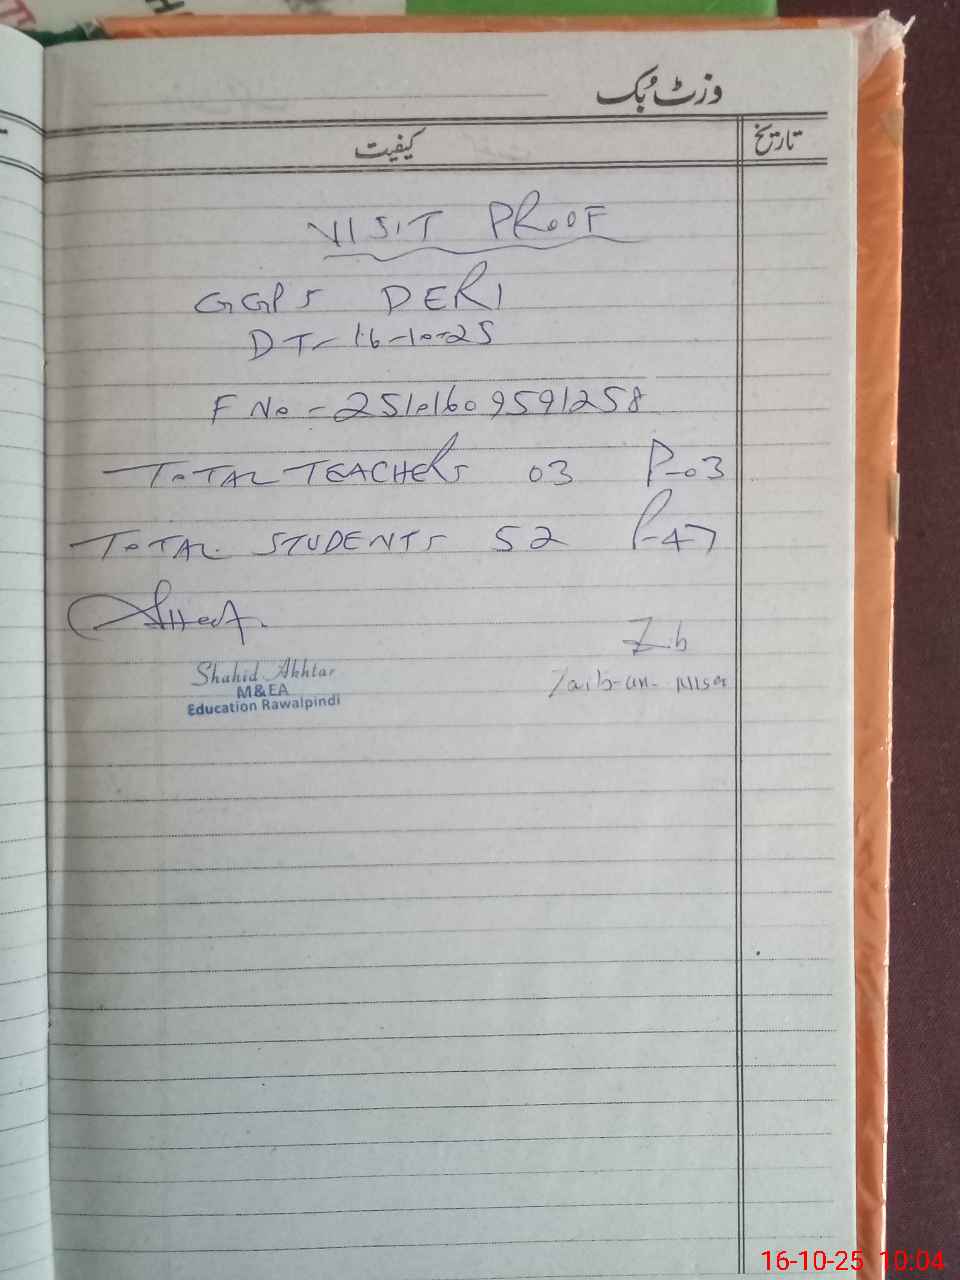 وزٹ بک
کیفیت
تاریخ
VISIT PROOF
GGPS DERI
DT- 16-10-25
F No - 25101609591258
TOTAL TEACHERS 03 P-03
TOTAL STUDENTS 52 P-47
Z.b
Shahid Akhtar
M&EA
Education Rawalpindi
Zaib-un-Nisa
16-10-25 10:04